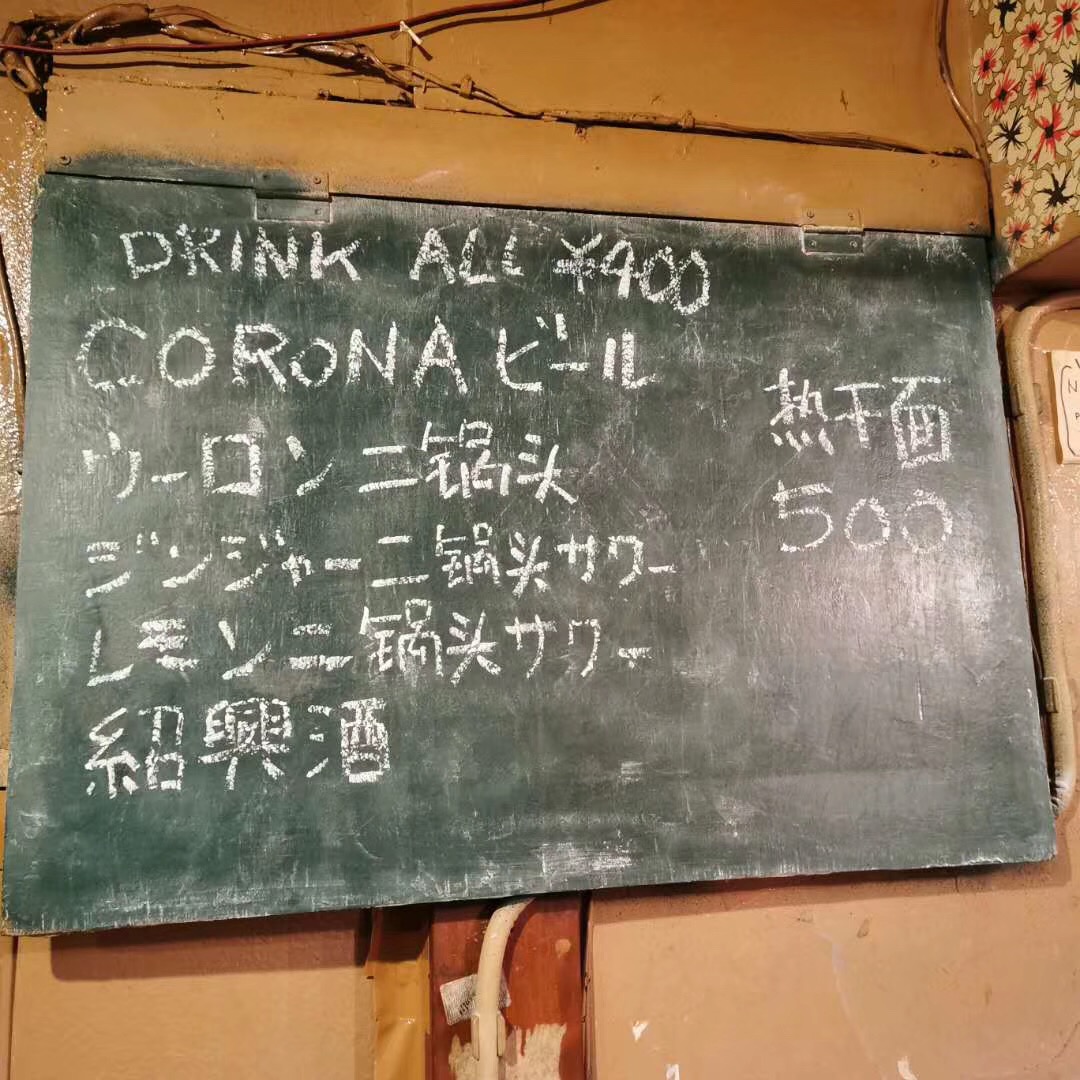 DRINK ALL ¥400
CORONA ビール
ウーロン二锅头
ジンジャー二锅头サワー
レモン二锅头サワー
紹興酒
熱干面
500